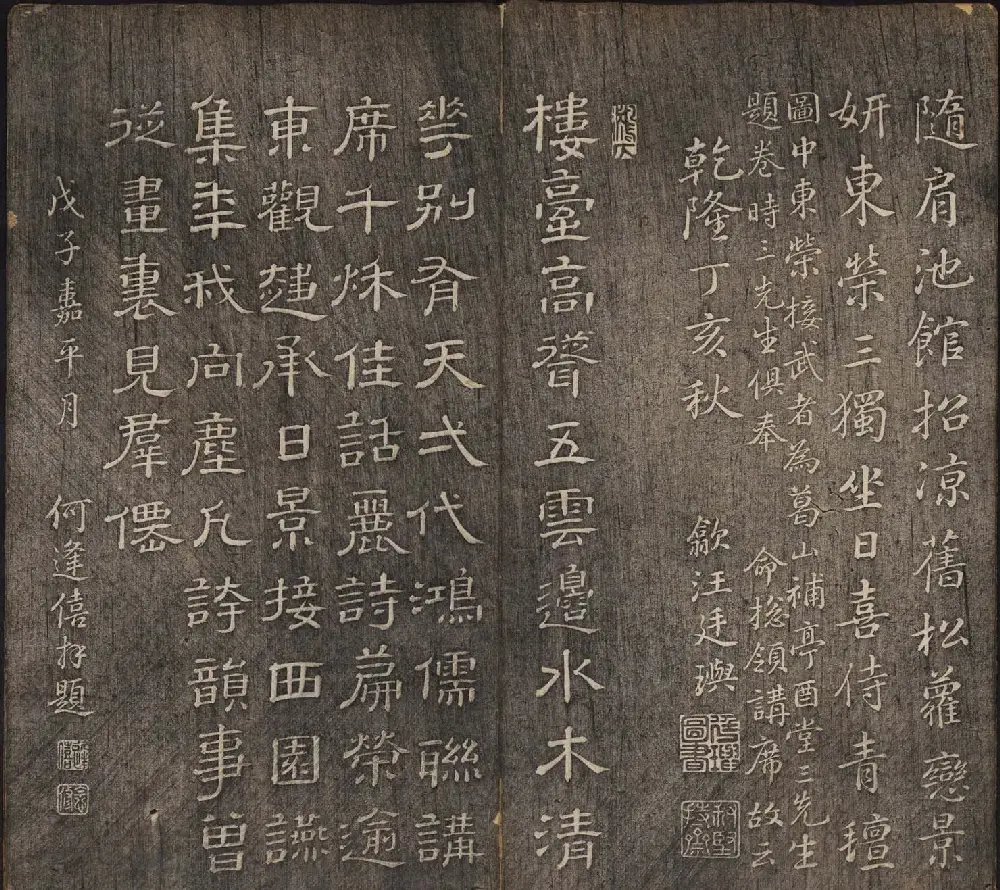 隨肩池館招涼舊松蘿戀景
妍東榮三獨坐日喜侍青壇
圖中東榮接武者為葛山補亭酉堂三先生
題卷時三先生俱奉 命總領講席故云
乾隆丁亥秋 歙汪廷璵
樓臺高聳五雲邊水木清
華別有天弌代鴻儒聯講
席千秋佳話麗詩篇榮逾
東觀趨承日景接西園讌
集年我向塵凡誇韻事曾
從畫裏見羣僊
戊子嘉平月 何逢僖拜題